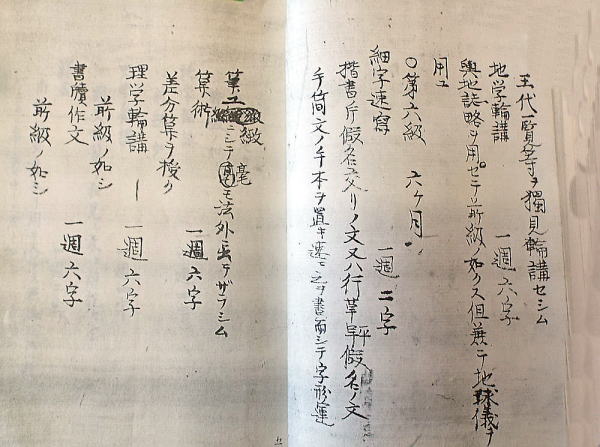 王代一覧等ヲ獨見輪講セシム
地学輪講 一週六字
與地誌略ヲ用セテ前級ノ如クス但兼テ地球儀ヲ
用ユ
○第六級 六ケ月
細字速寫 一週二字
楷書片假名交リノ文又ハ行草平假名ノ文
手簡文ノ手本ヲ置キ速ニ之ヲ書寫シテ字形運
筆ユ 緻ニシテ毫モ法外ニ出テザラシム
算術 一週六字
差分算ヲ授ク
理学輪講 一週六字
前級ノ如シ
書牘作文 一週六字
前級ノ如シ